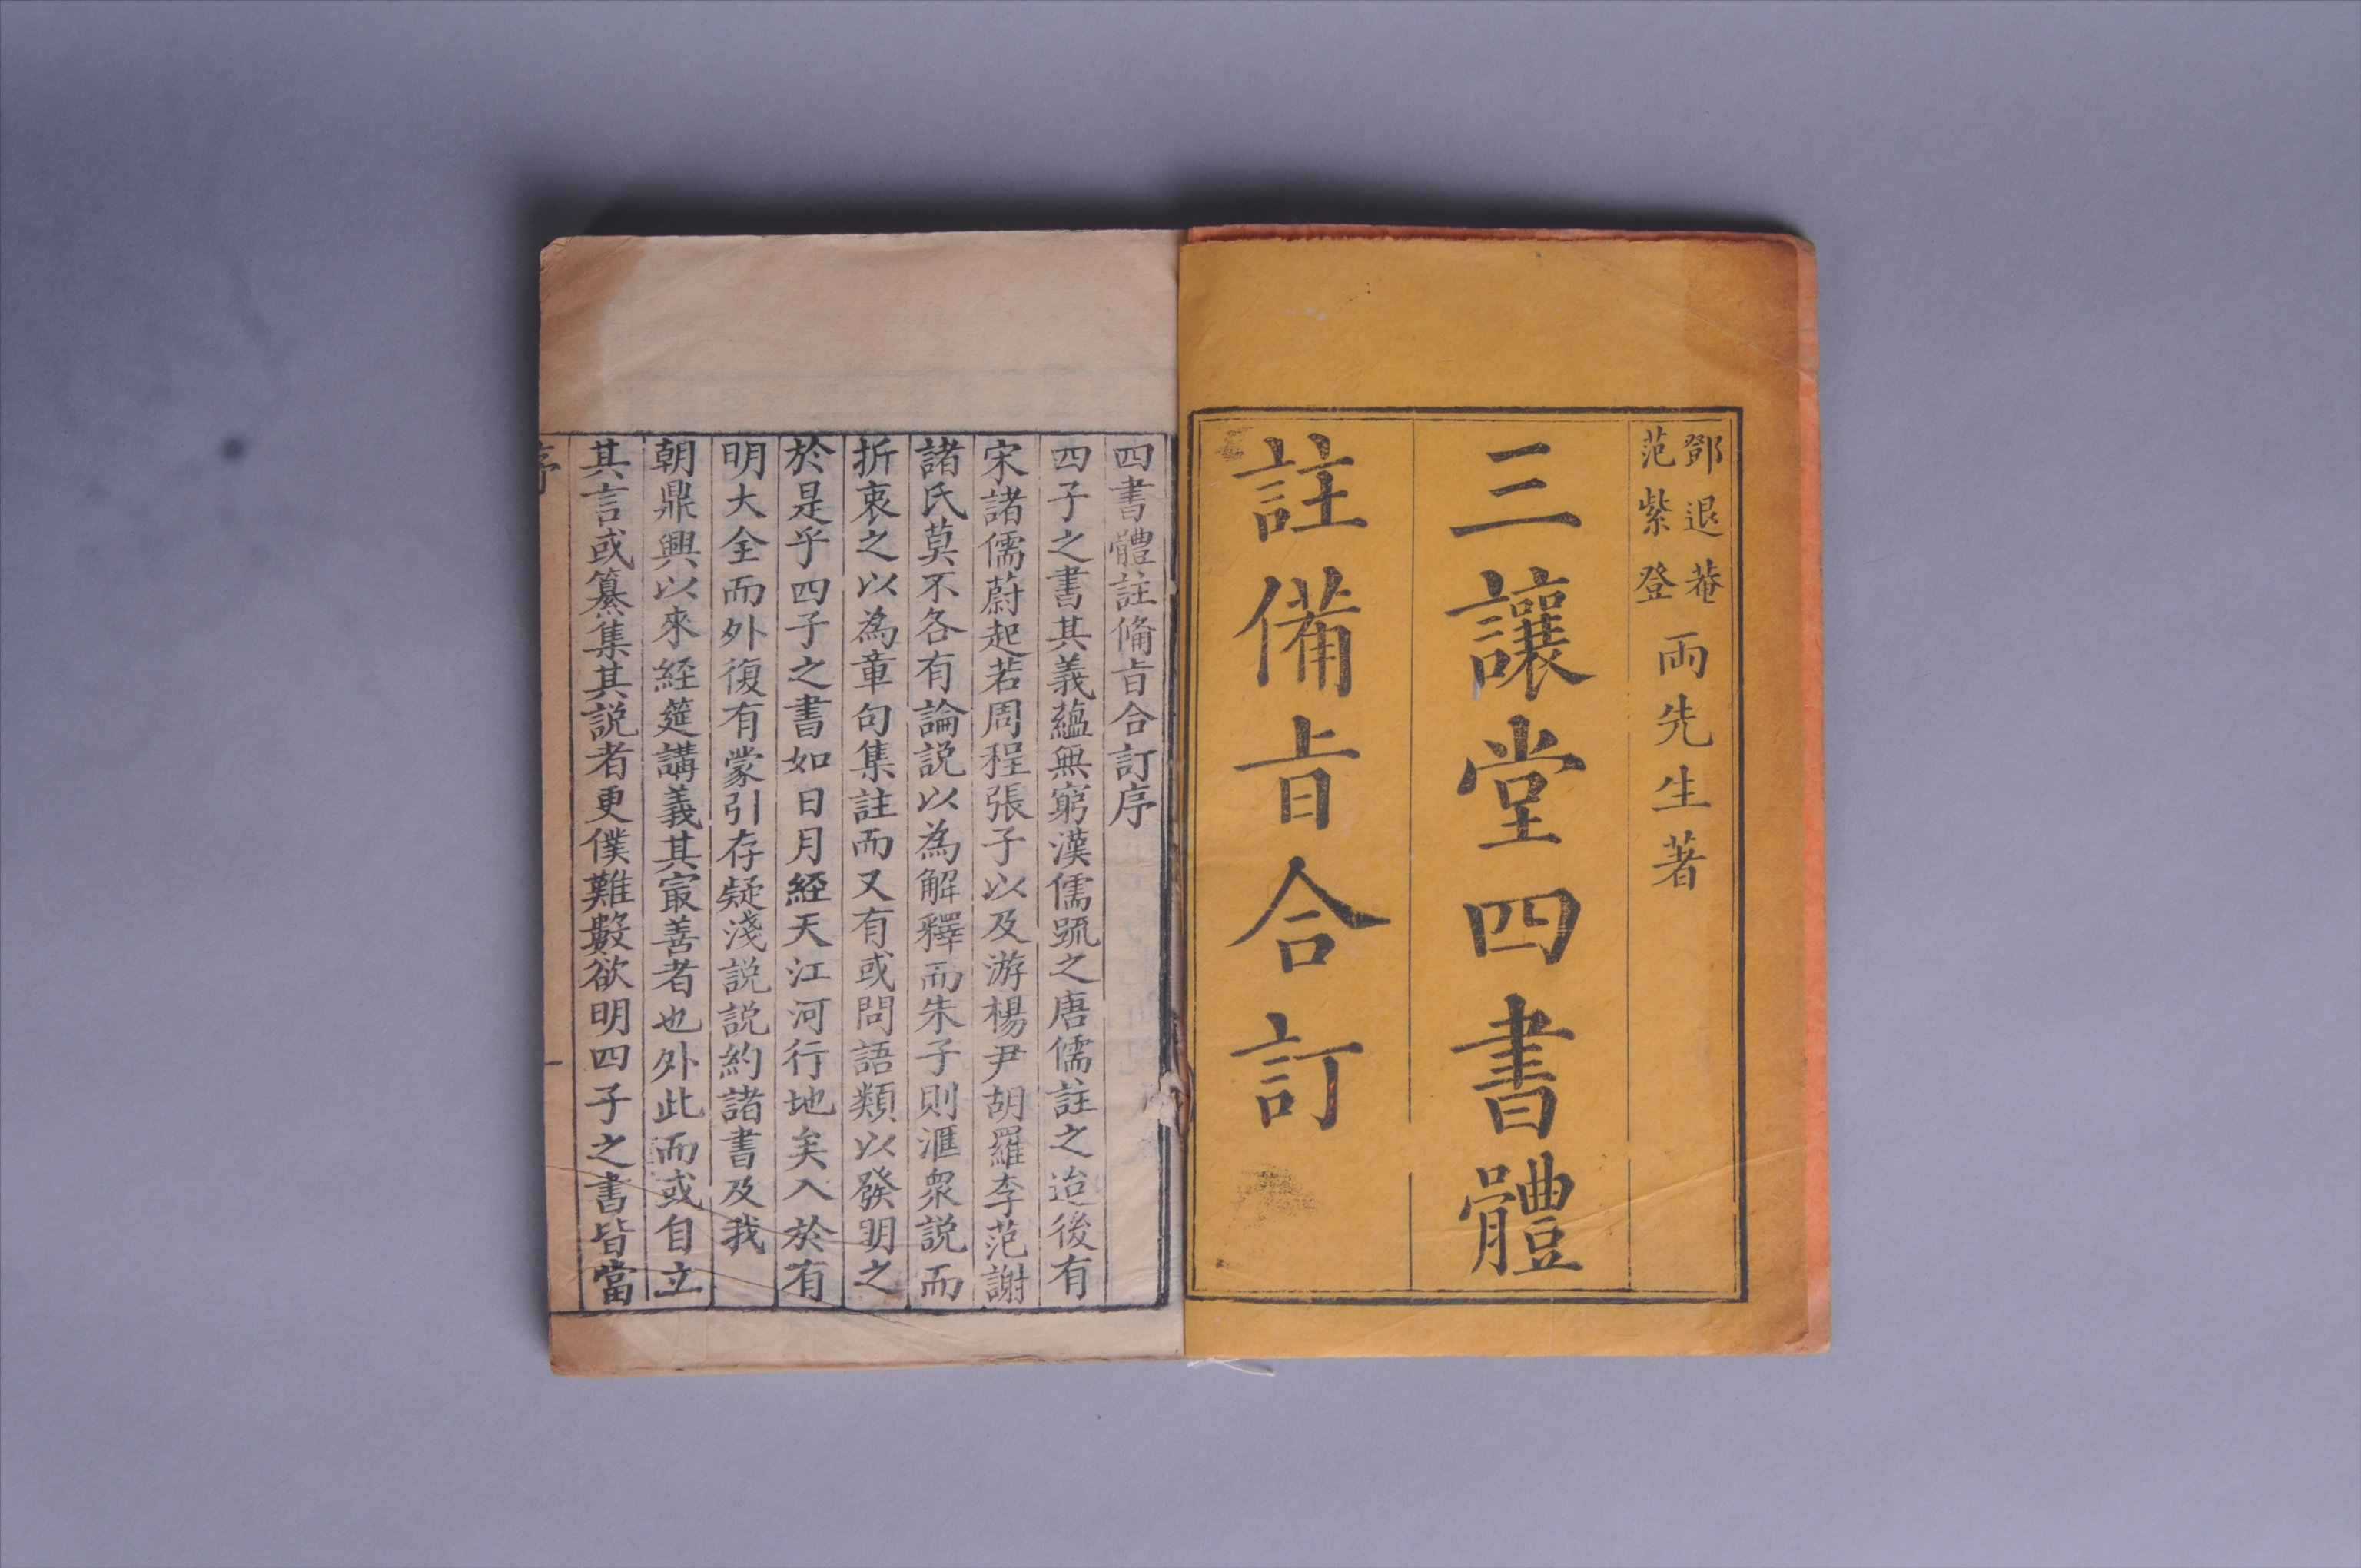 鄧退菴
范紫登
兩先生著
三讓堂四書體
註備旨合訂
四書體註備旨合訂序
四子之書其義蘊無窮漢儒疏之唐儒註之迨後有
宋諸儒蔚起若周程張子以及游楊尹胡羅李范謝
諸氏莫不各有論説以為解釋而朱子則滙衆説而
折衷之以為章句集註而又有或問語類以發明之
於是乎四子之書如日月經天江河行地矣入於有
明大全而外復有蒙引存疑淺説説約諸書及我
朝鼎興以來經筵講義其㝡善者也外此而或自立
其言或纂集其説者更僕難數欲明四子之書皆當
序
一